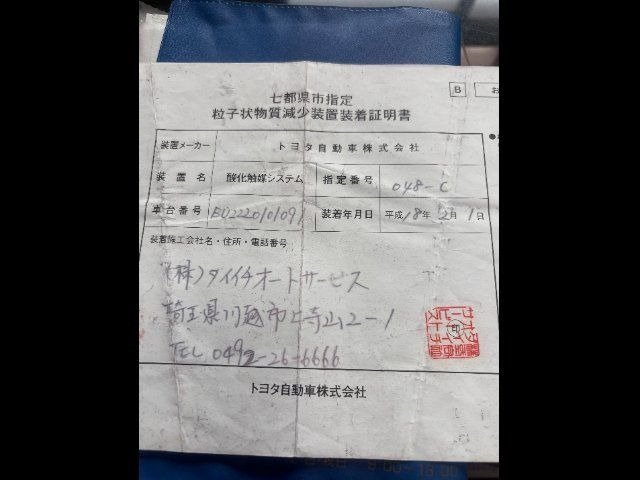 B
お
七都県市指定
粒子状物質減少装置装着証明書
装置メーカー トヨタ自動車株式会社
装置名 酸化触媒システム 指定番号 048-C
車台番号 BU2220101091 装着年月日 平成18年12月1日
装着施工会社名・住所・電話番号
(株)ダイイチオートサービス
埼玉県川越市上寺山2-1
TEL 0492-26-6666
トヨタ自動車株式会社
9:00-18:00